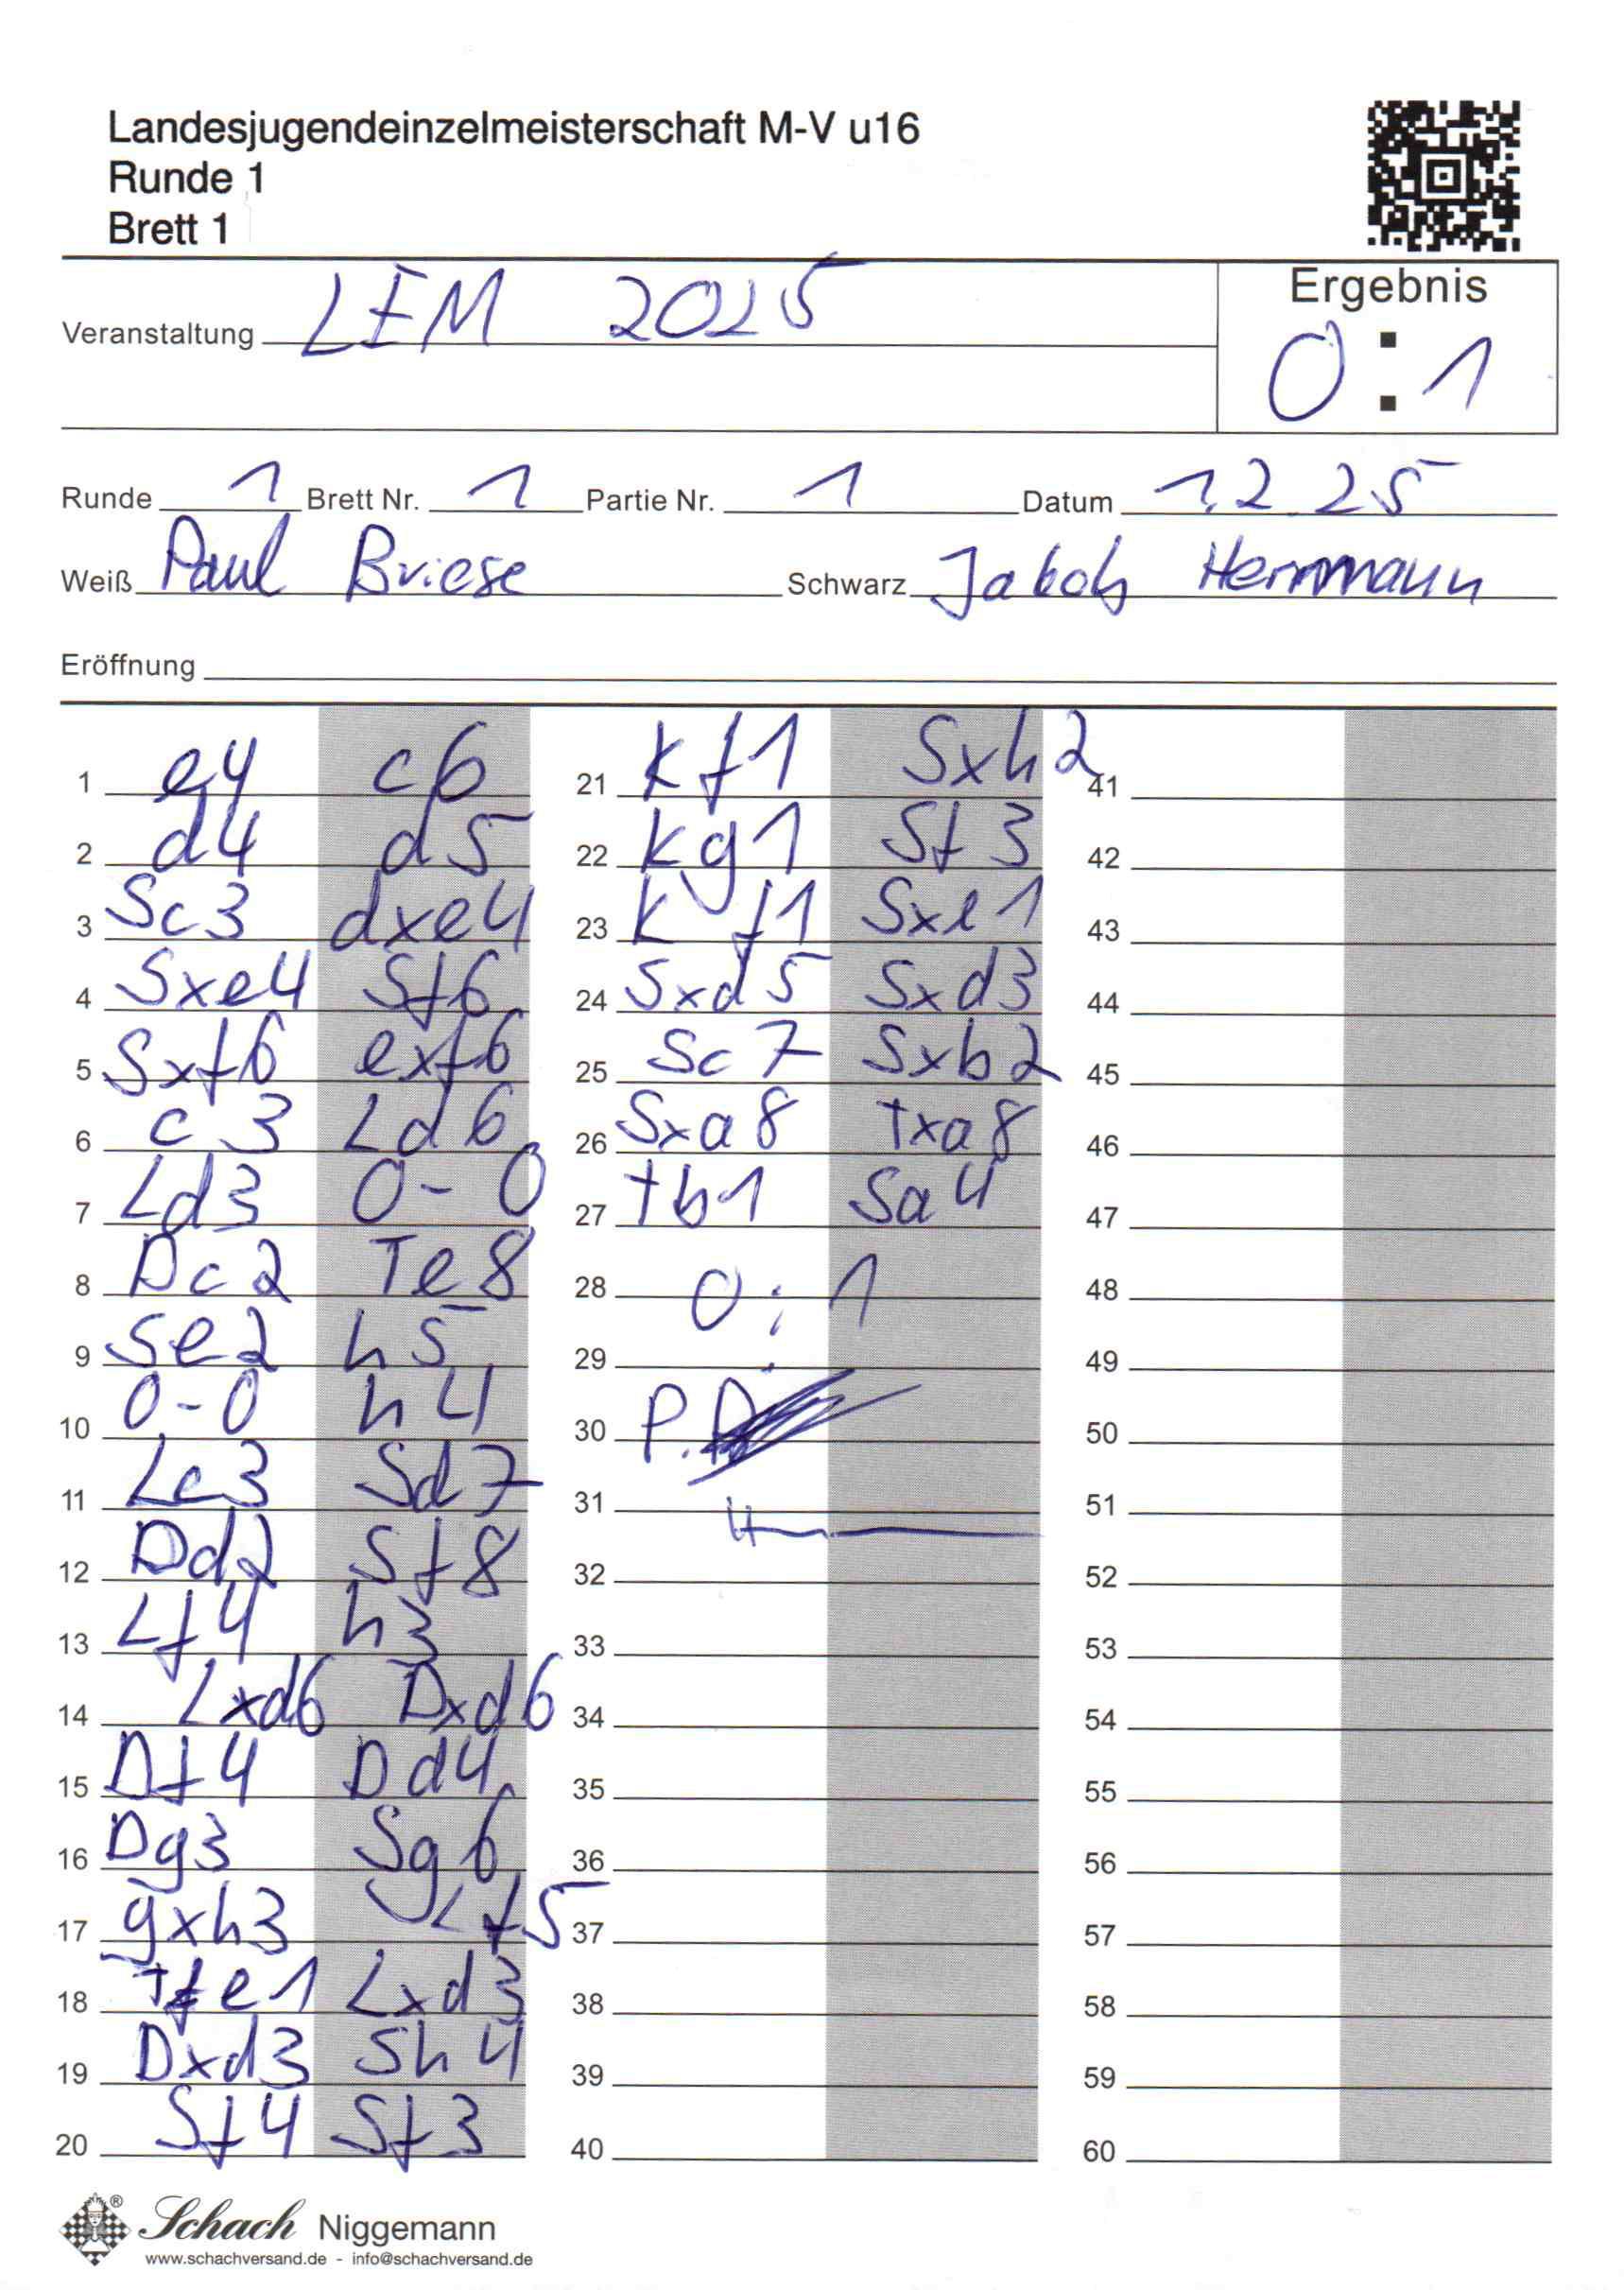 Landesjugendeinzelmeisterschaft M-V u16
Runde 1
Brett 1
Veranstaltung LEM 2025
Ergebnis
0 : 1
Runde 1 Brett Nr. 1 Partie Nr. 1 Datum 1.2.25
Weiß Paul Briese Schwarz Jakob Herrmann
Eröffnung
1 e4 c6
2 d4 d5
3 Sc3 dxe4
4 Sxe4 Sf6
5 Sxf6 exf6
6 c3 Ld6
7 Ld3 0-0
8 Dc2 Te8
9 Se2 h5
10 0-0 h4
11 Le3 Sd7
12 Dd2 Sf8
13 Lf4 h3
14 Lxd6 Dxd6
15 Df4 Dd4
16 Dg3 Sg6
17 gxh3 Lf5
18 Tfe1 Lxd3
19 Dxd3 Sh4
20 Sf4 Sf3
21 Kf1 Sxh2
22 Kg1 Sf3
23 Kf1 Sxe1
24 Sxd5 Sxd3
25 Sc7 Sxb2
26 Sxa8 Txa8
27 Tb1 Sa4
28 0 : 1
29
30 P.
31
32
33
34
35
36
37
38
39
40
41
42
43
44
45
46
47
48
49
50
51
52
53
54
55
56
57
58
59
60
® Schach Niggemann
www.schachversand.de - info@schachversand.de